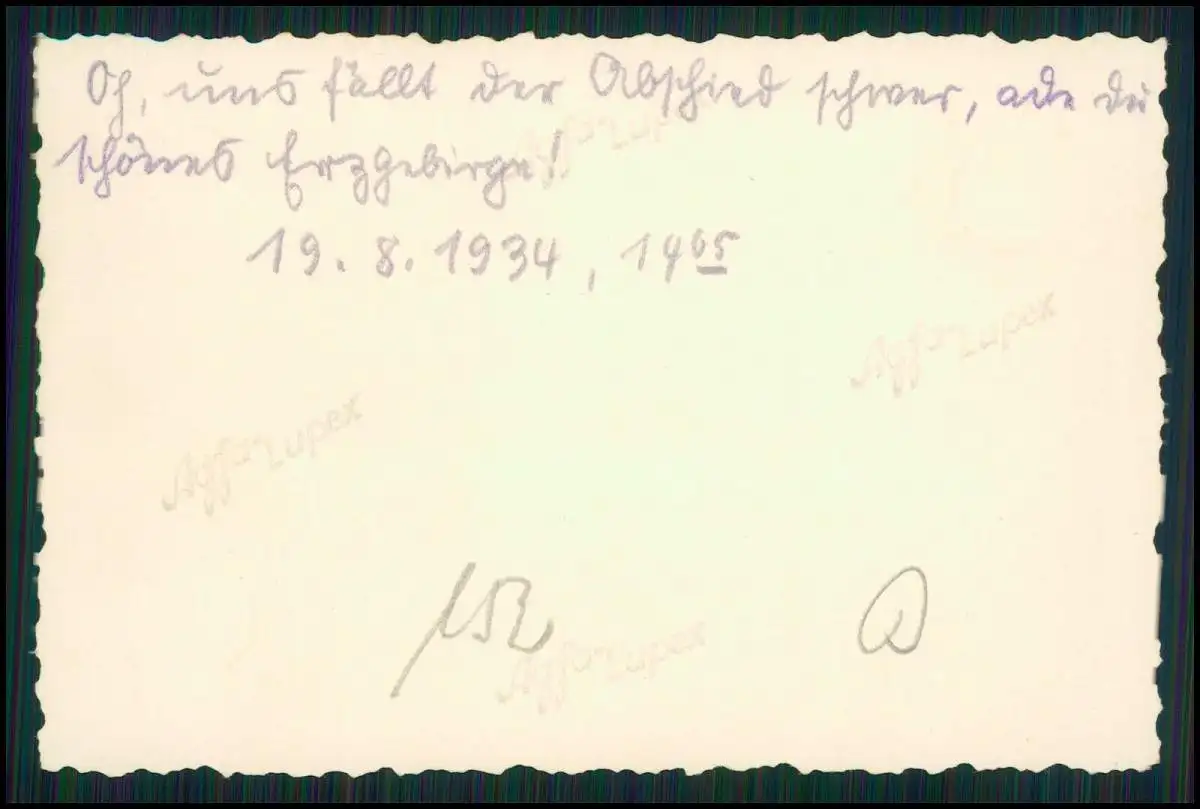 Oh, uns fällt der Abschied schwer, ade du
schönes Erzgebirge!
19. 8. 1934, 14 05
Agfa-Lupex
Agfa-Lupex
Agfa-Lupex
Agfa-Lupex